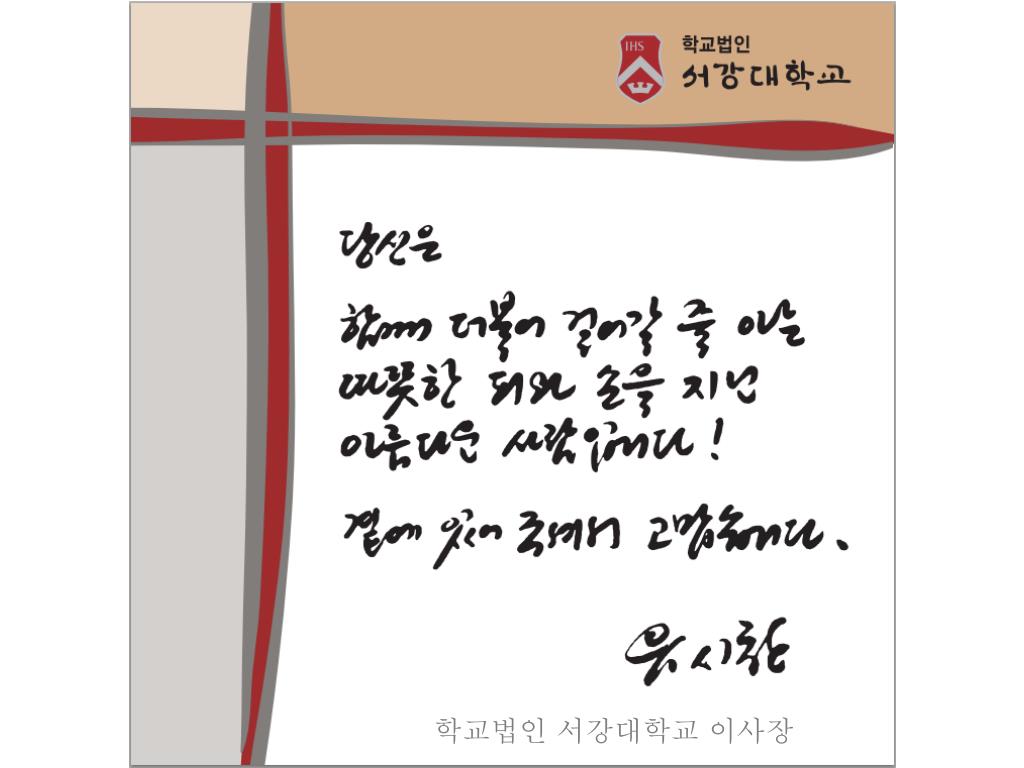 IHS
학교법인
서강대학교
당신은
함께 더불어 걸어갈 줄 아는
따뜻한 피와 손을 지닌
아름다운 사람입니다!
곁에 있어 주셔서 고맙습니다.
학교법인 서강대학교 이사장